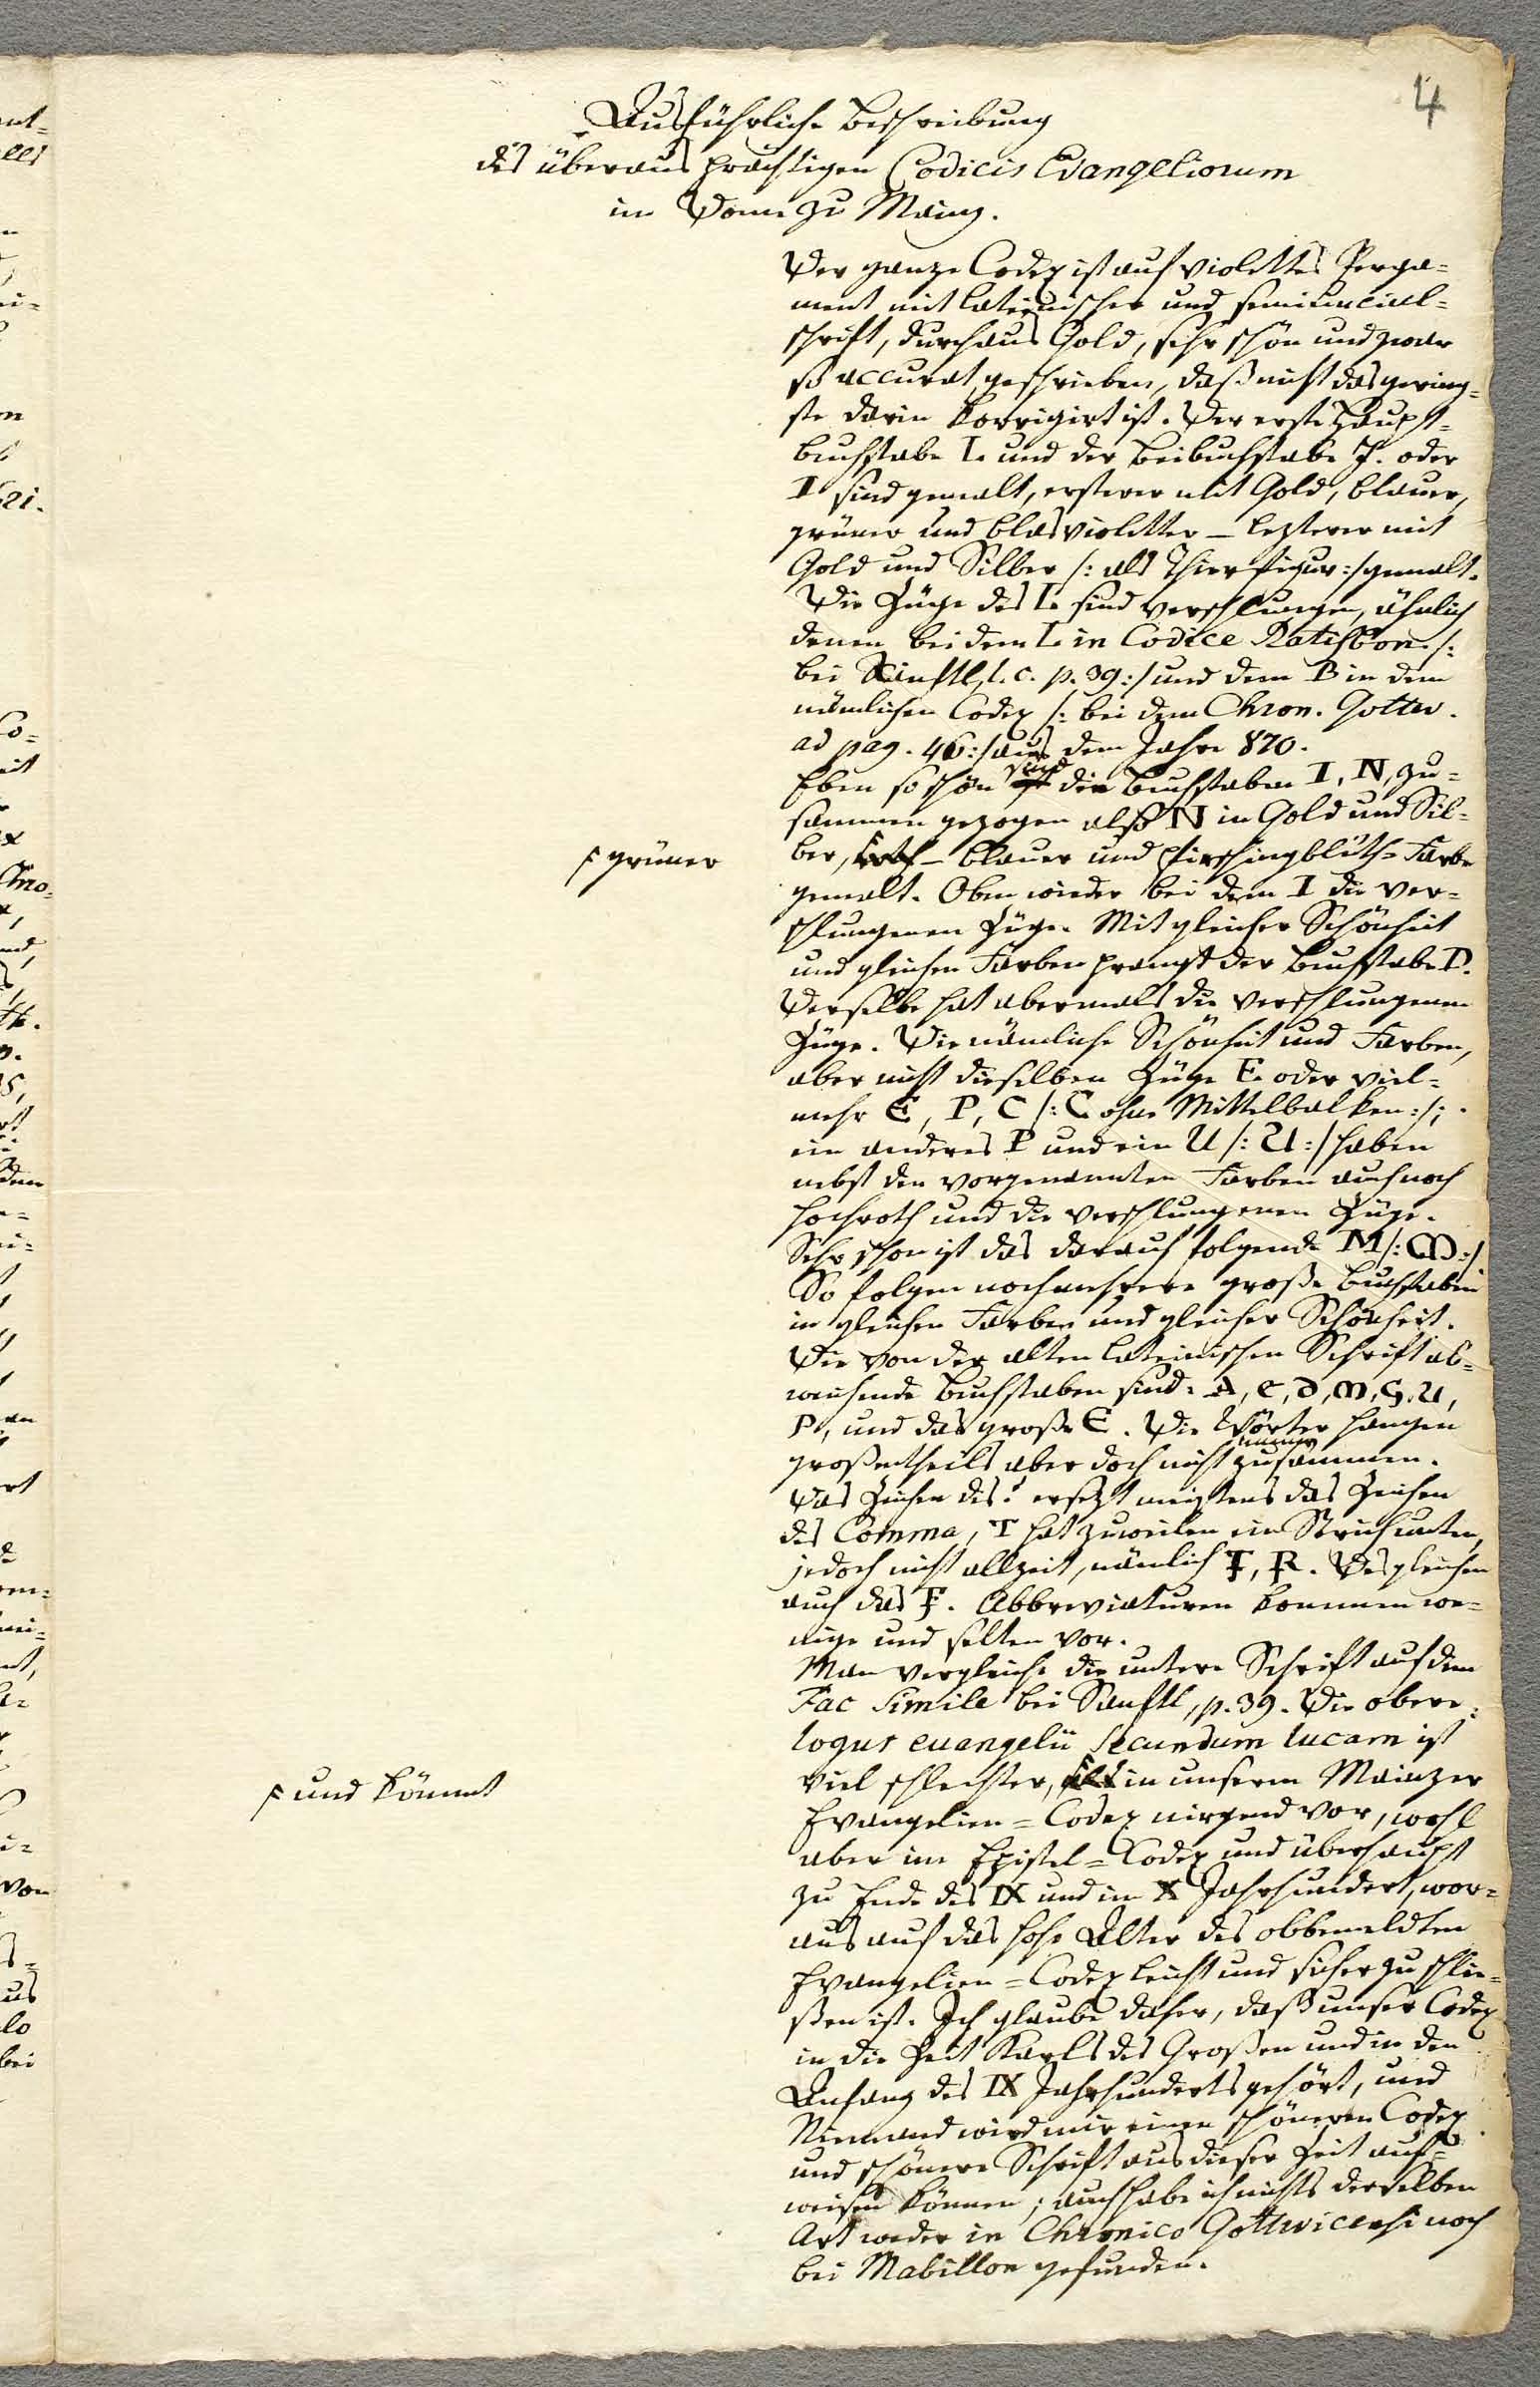 4
Ausführliche Beschreibung
des überaus prächtigen Codicis Evangeliorum
im Dome zu Mainz.
Der ganze Codex ist auf violettes Perga=
ment mit lateinischer und semiuncial=
schrift, durchaus Gold, sehr schön und zwar
so accurat geschrieben, daß nicht das gering=
ste darin korrigirt ist. Der erste Haupt=
buchstabe L und der Beibuchstabe J. oder
I sind gemalt, ersterer mit Gold, blauer,
grüner und blasvioletter – lezterer mit
Gold und Silber /: als Thierfigur :/ gemalt.
Die Züge des L sind verschlungen, ähnlich
denen bei dem L in Codice Ratisbon. /:
bei Sanftl, l. c. p. 39 :/ und dem B in dem
nämlichen Codex /: bei dem Chron. Gottw.
ad pag. 46 :/ aus dem Jahre 870.
Eben so schön sind die Buchstaben I, N, zu=
sammen gezogen also N in Gold und Sil=
ber, – blauer und Pfirschingblüth= Farbe
F grüner
gemalt. Oben wieder bei dem I die ver=
schlungenen Züge. Mit gleicher Schönheit
und gleichen Farben prangt der Buchstabe P.
Derselbe hat abermals die verschlungenen
Züge. Die nämliche Schönheit und Farben,
aber nicht dieselben Züge E oder viel=
mehr E, P, C /: C ohne Mittelbalken :/;
ein anderes P und ein U /: U :/ haben
nebst den vorgenannten Farben auch noch
hochroth und die verschlungenen Züge.
Sehr schön ist das darauf folgende M /: M :/
So folgen noch mehrere große Buchstaben
in gleichen Farben und gleicher Schönheit.
Die von der alten lateinischen Schrift ab=
weichende Buchstaben sind: A, e, d, m, G, U,
P, und das große E. Die Wörter hangen
großentheils aber doch nicht immer zusammen.
Das Zeichen des ? ersezt meistens das Zeichen
des Comma, T hat zuweilen ein Strich unten,
jedoch nicht allzeit, nämlich T, R. Desgleichen
auch das F. Abbreviaturen kommen we=
nige und selten vor.
Man vergleiche die untere Schrift auf dem
Fac Simile bei Sanftl, p. 39. Die obere:
logus euangelii secundum lucam ist
viel schlechter, in unserem Mainzer
F und kömmt
Evangelien= Codex nirgend vor, wohl
aber im Epistel= Codex und überhaupt
zu Ende des IX und im X Jahrhundert, wor=
aus auf das hohe Alter des obbemeldten
Evangelien= Codex leicht und sicher zu schlie=
ßen ist. Ich glaube daher, daß unser Codex
in die Zeit Karls des Großen und in den
Anfang des IX Jahrhunderts gehört, und
Niemand wird mir einen schöneren Codex
und schönere Schrift aus dieser Zeit auf=
weisen können; auch habe ich nichts derselben
Art weder in Chronico Gottwicensi noch
bei Mabillon gefunden.